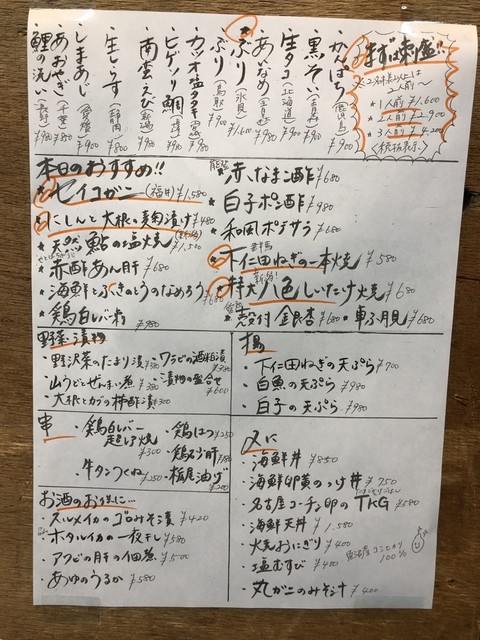 まずは刺盛!!
2名様以上は
2人前〜
★1人前 ¥1,600
2人前 ¥2,900
3人前 ¥4,200
<税抜表示>
・かんぱち(鹿児島)¥900
・黒そい(青森)¥900
・生タコ(北海道)¥900
・あいなめ(青森)¥980
★ぶり(氷見)¥980
・ぶり(鳥取)¥900
・カツオ塩タタキ
・ヒゲソリ鯛
・南蛮えび(新潟)¥900
・生しらす(静岡)¥800
・しまあじ(愛媛)¥900
・あおやぎ(千葉)¥980
・鯉の洗い(長野)¥780
本日のおすすめ!!
★セイコガニ(福井)¥1,580
★にしんと大根の麹漬け ¥480
★天然鮎の塩焼 ¥1,500
★赤酢あん肝 ¥680
★海鮮とふきのとうのなめろう ¥680
★鶏白レバー刺 ¥980
能登 赤なまこ酢 ¥680
★白子ポン酢 ¥980
★和風ポテサラ ¥680
群馬
★下仁田ねぎの一本焼 ¥580
新潟!
★特大八色しいたけ焼 ¥680
★殻付金銀杏 ¥680 ★車ふ月見 ¥680
野菜・漬物
・野沢菜のたまり漬 ¥380
・山うどぜんまい煮 ¥380
・大根とカブの柿酢漬 ¥300
・ワラビの酒粕漬
・漬物の盛合せ ¥600
揚
・下仁田ねぎの天ぷら ¥700
・白魚の天ぷら ¥980
・白子の天ぷら ¥980
串
・鶏白レバー
超レア焼 ¥300
・牛タンつくね ¥250
・鶏はつ ¥250
・鶏砂肝 ¥180
・栃尾油げ ¥200
お酒のお供に…
・スルメイカのゴロみそ漬 ¥420
・ホタルイカの一夜干し ¥580
・アワビの肝の佃煮 ¥500
・あゆのうるか ¥580
〆に
・海鮮丼 ¥850
・海鮮卵黄のっけ丼 ¥750
・名古屋コーチン卵のTKG ¥580
たまごかけごはん
・海鮮天丼 ¥1,580
・焼おにぎり ¥400
・塩むすび ¥400
・丸ガニのみそ汁 ¥400
魚沼産コシヒカリ
100%